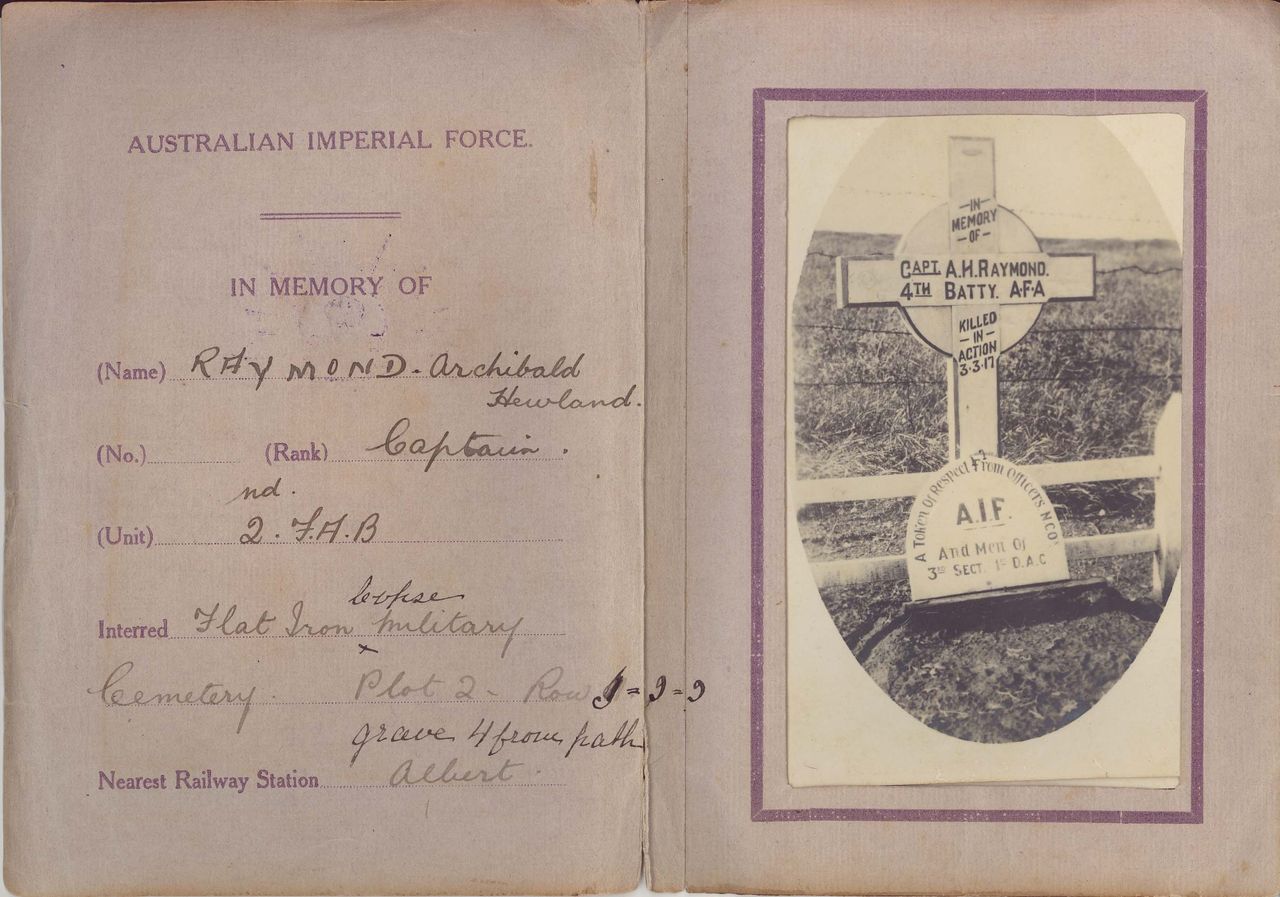 AUSTRALIAN IMPERIAL FORCE.
IN MEMORY OF
(Name) RAYMOND. Archibald
Hewland.
(No.) (Rank) Captain.
nd.
(Unit) 2. F.A.B
Copse
Interred Flat Iron Military
x
Cemetery. Plot 2 - Row
grave 4 from path
Nearest Railway Station Albert.
-IN-
MEMORY
-OF-
CAPT. A.H.RAYMOND.
4TH BATTY. A·F·A
KILLED
-IN-
ACTION
3·3·17
A Token Of Respect From Officers N.C.Os
A.I.F.
And Men Of
3RD SECT. 1ST D.A.C